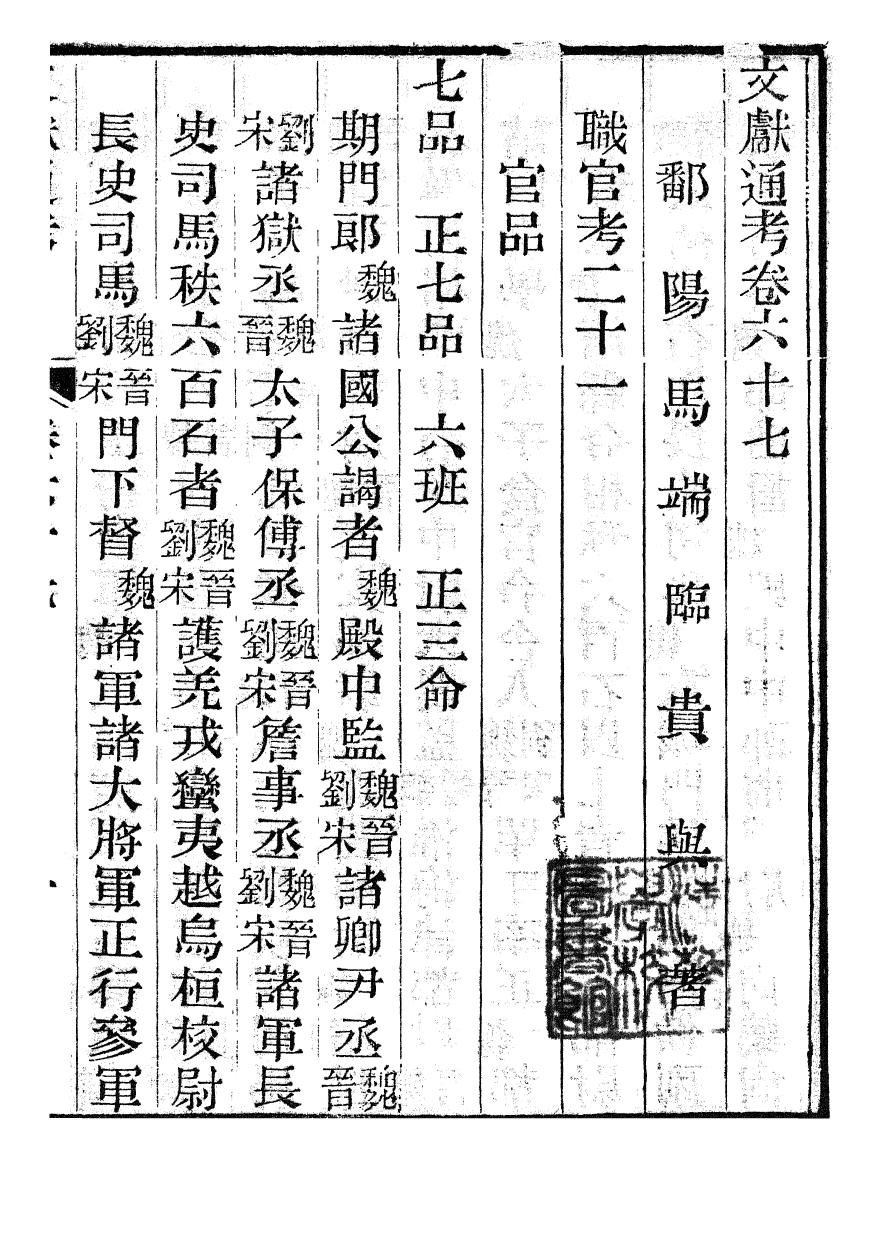 文獻通考卷六十七
鄱陽馬端臨貴與著
職官考二十一
官品
七品　正七品　六班　正三命
期門郎魏諸國公謁者魏殿中監魏晉劉宋諸卿尹丞魏晉
劉宋諸獄丞魏晉太子保傅丞魏晉劉宋詹事丞魏晉劉宋諸軍長
史司馬秩六百石者魏晉劉宋護羌戎蠻夷越烏桓校尉
長史司馬魏晉劉宋門下督魏諸軍諸大將軍正行參軍